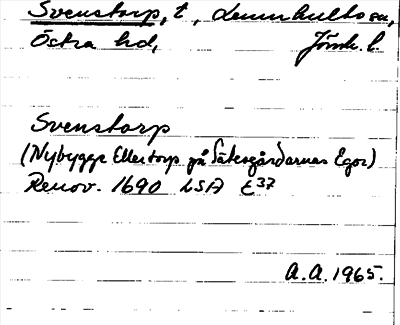 Svenstorp, t, Lemnhults sn,
Östra hd, Jönk. l.
Svenstorp
(Nybygge Ellertorp på Sätesgårdarnas Egor)
Renov. 1690 LSA E37
A.A. 1965.